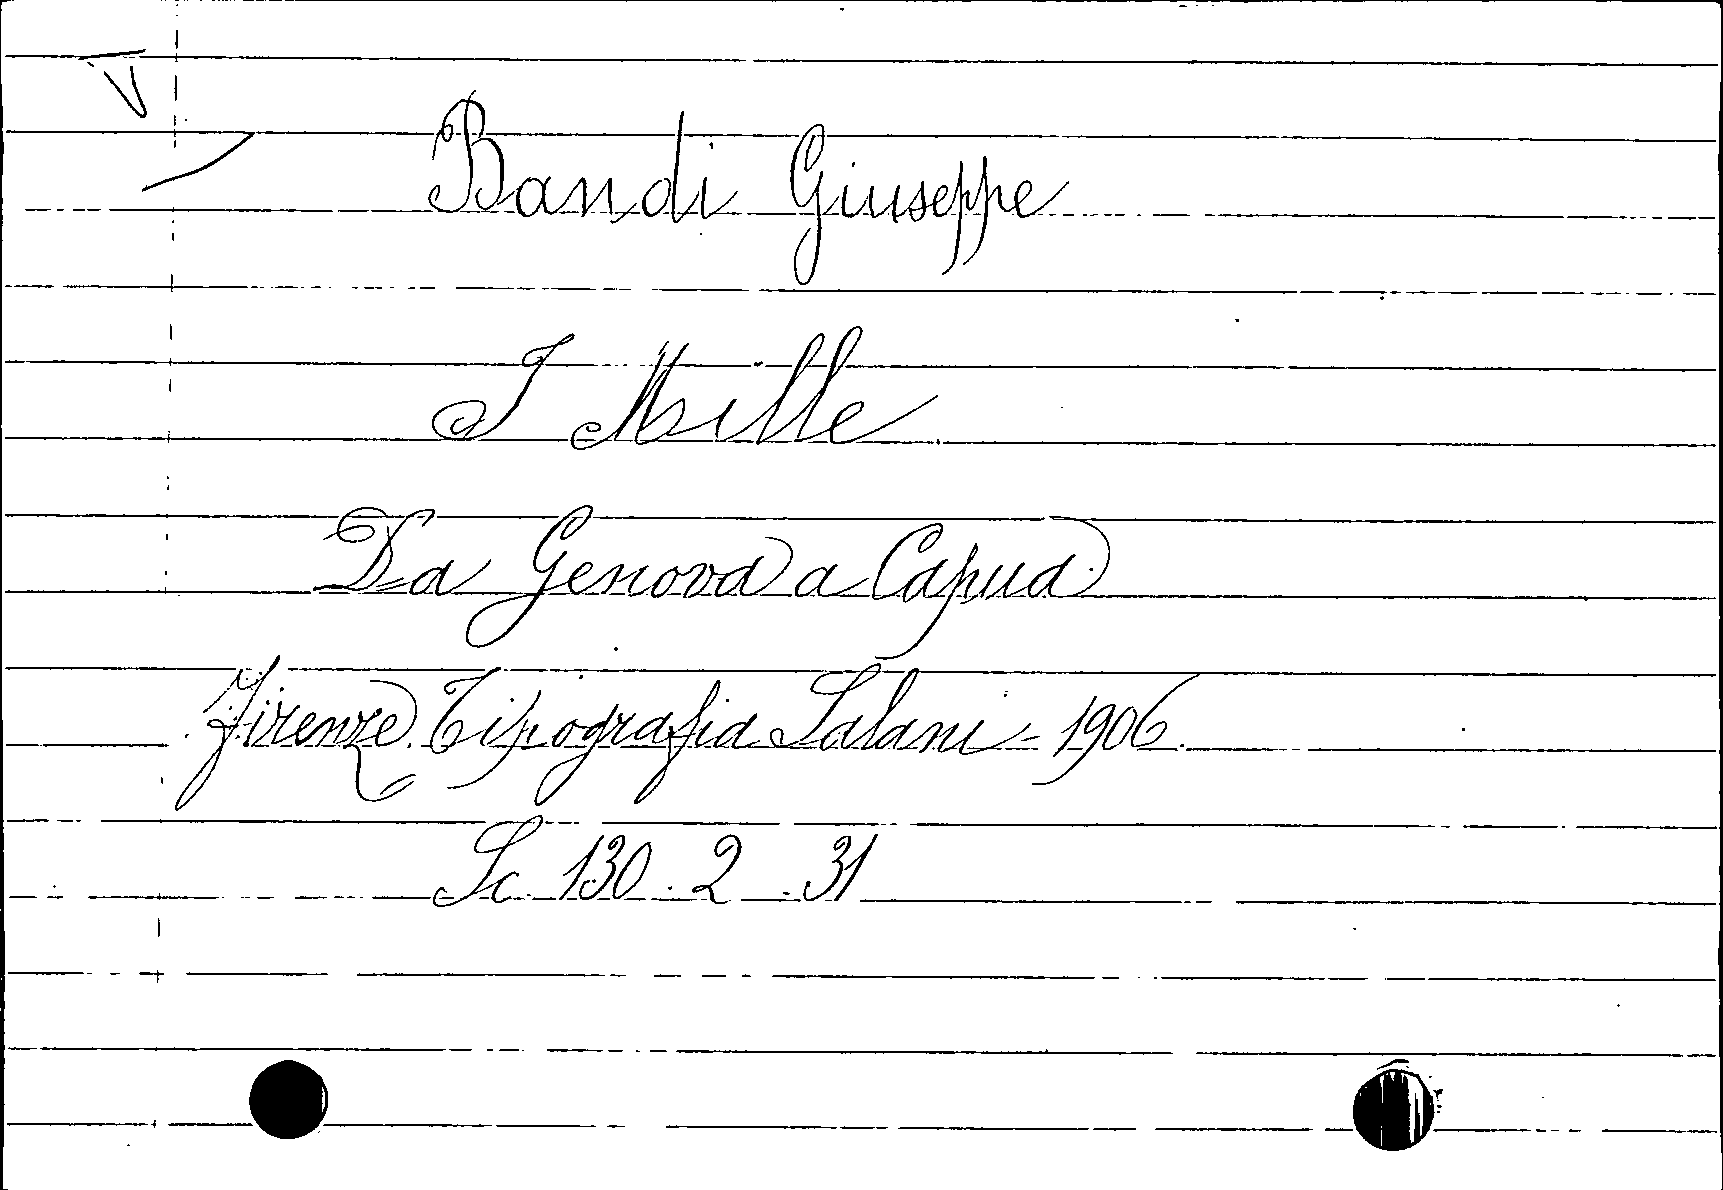 Bandi Giuseppe
I Mille
Da Genova a Capua
Firenze. Tipografia Salani - 1906.
Sc. 130. 2. 31